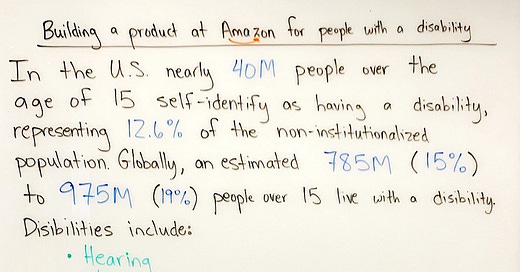 Building a product at Amazon for people with a disability
In the U.S. nearly 40M people over the
age of 15 self-identify as having a disability,
representing 12.6% of the non-institutionalized
population. Globally, an estimated 785M (15%)
to 975M (19%) people over 15 live with a disibility.
Disibilities include:
• Hearing